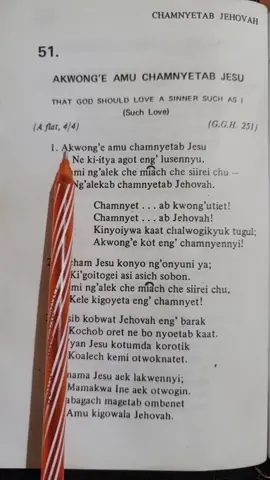 CHAMNYETAB JEHOVAH
51.
AKWONG'E AMU CHAMNYETAB JESU
THAT GOD SHOULD LOVE A SINNER SUCH AS I
(Such Love)
(A flat, 4/4) (G.G.H. 251)
1. Akwong'e amu chamnyetab Jesu
Ne ki-itya agot eng' lusennyu.
ng'alek che miach che siirei chu —
Ng'alekab chamnyetab Jehovah.
Chamnyet . . . ab kwong'utiet!
Chamnyet . . . ab Jehovah!
Kinyoiywa kaat chalwogikyuk tugul;
Akwong'e kot eng' chamnyennyi!
Jesu konyo ng'onyuni ya;
Ki'goitogei asi asich sobon.
ng'alek che miach che siirei chu,
Kele kigoyeta eng' chamnyet!
kobwat Jehovah eng' barak
Kochob oret ne bo nyoetab kaat.
Jesu kotumda korotik
Koalech kemi otwoknatet.
Jesu aek lakwennyi;
Mamakwa Ine aek otwogin.
magetab ombenet
Amu kigowala Jehovah.